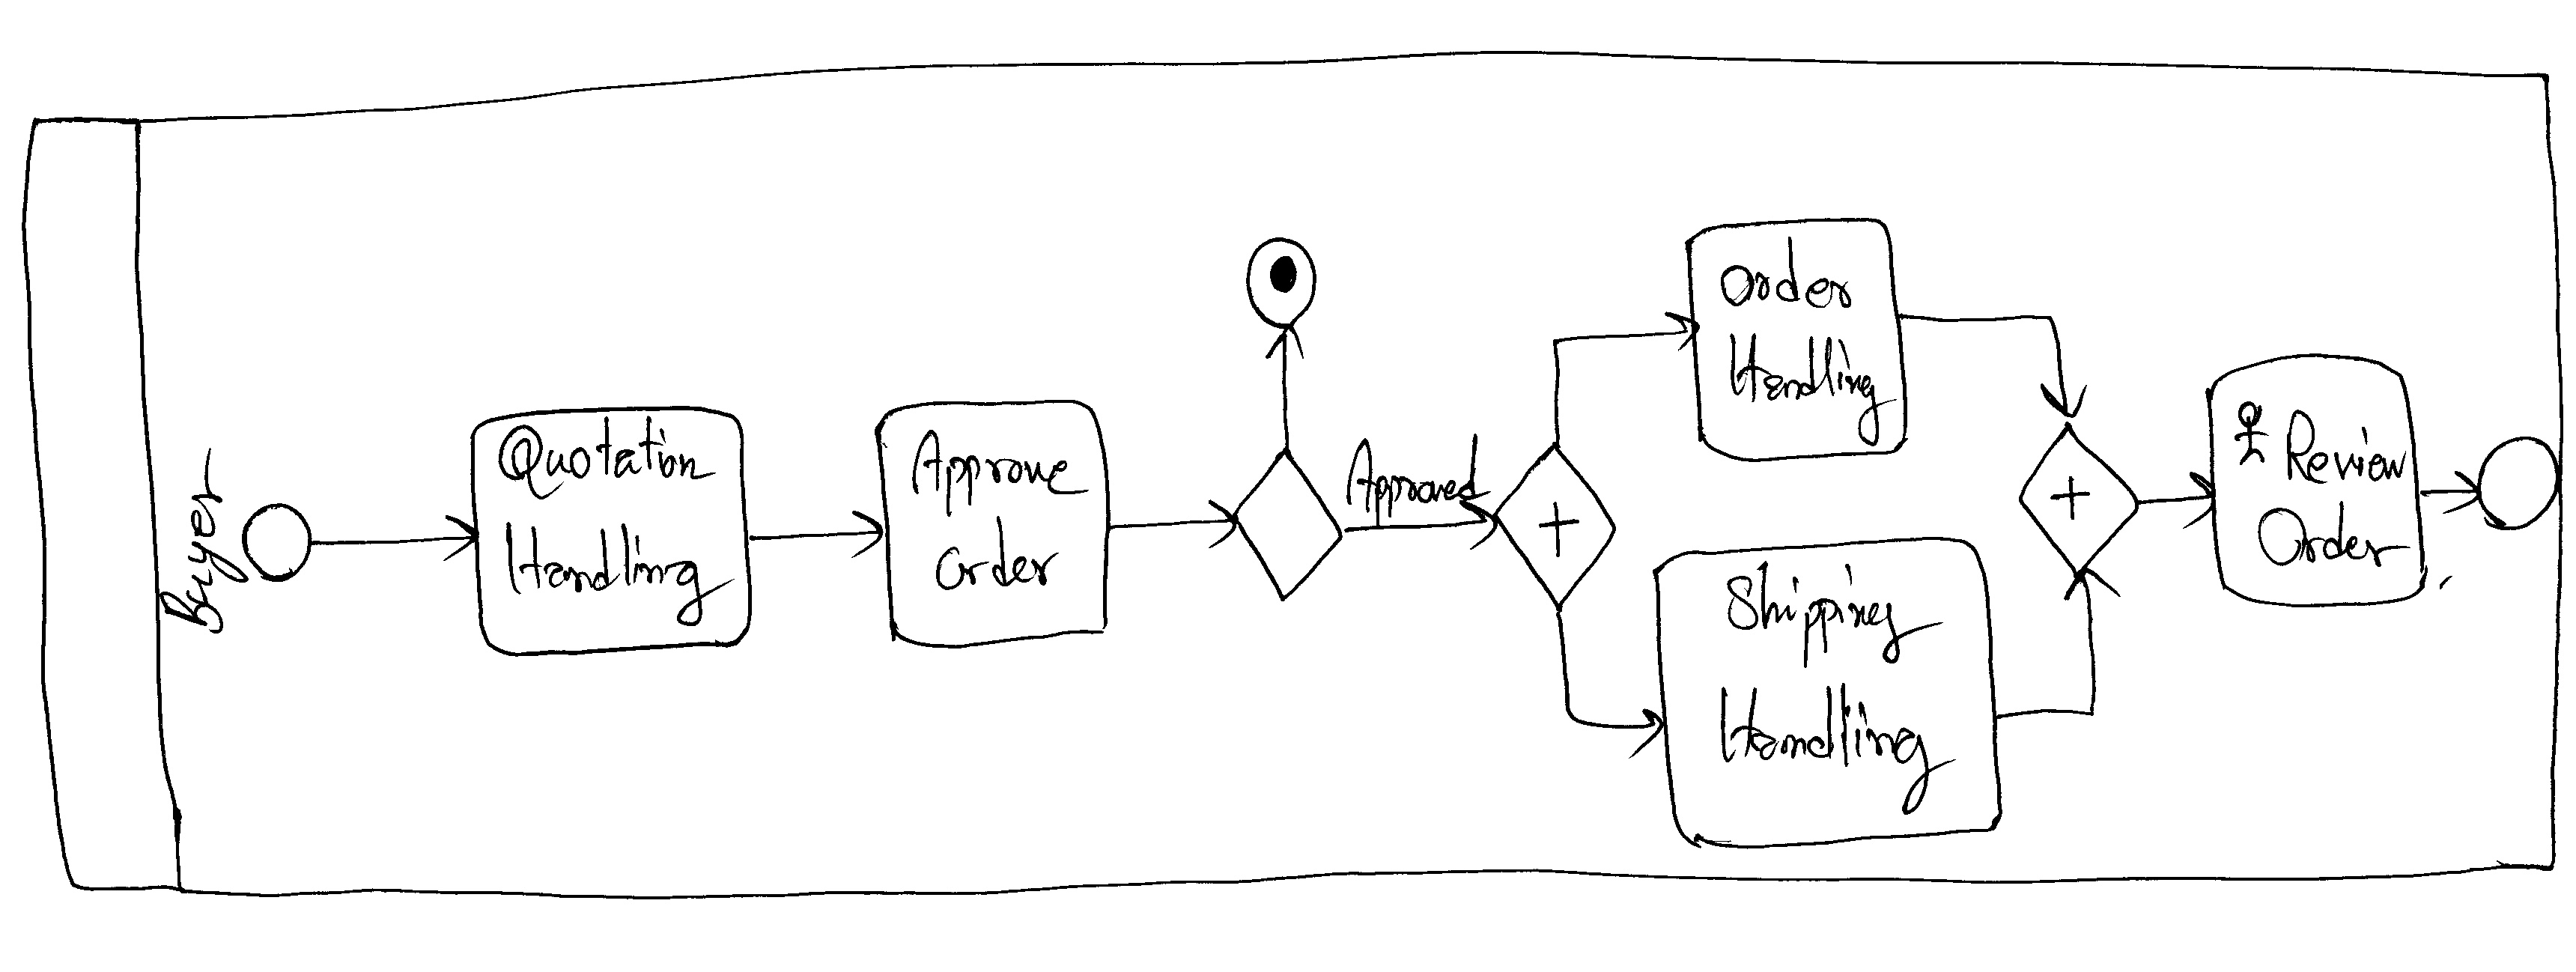 Buyer
Quotation
Handling
Approve
order
Approved
Order
Handling
Shipping
Handling
Review
Order